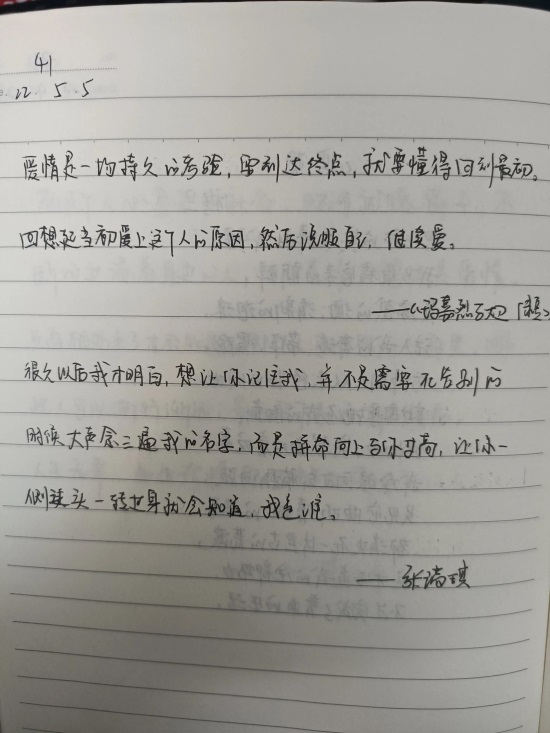 41
22.5.5
爱情是一场持久的考验,要到达终点,就要懂得回到最初。
回想起当初爱上这个人的原因,然后说服自己,继续爱。
——八月
很久以后我才明白,想让你记住我,并不是需要在告别的
时候大声念三遍我的名字,而是拼命向上与你甘高,让你一
侧头一转身就会知道,我是谁。
——张